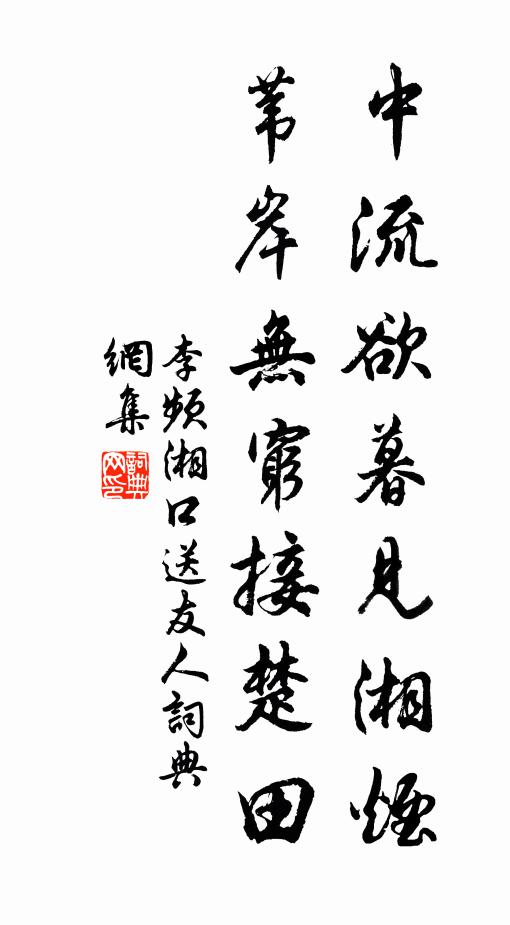 中流欲暮見湘煙
苇岸無窮接楚田
李频湘口送友人詞典
網集
詞典
网印